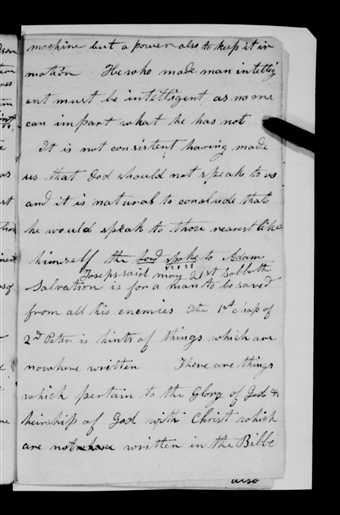 machine but a power also to keep it in
motion He who made man intellig
ent must be intelligent as no one
can impart what he has not
It is not consistent having made
us that God should not speak to us
and it is natural to conclude that
he would speak to those nearest like
himself the Lord spoke to Adam
Joseps said may 21st Sabbath
Salvation is for a man to be saved
from all his enemies The 1st chap of
2d Peter is hints of things which are
nowhere written There are things
which pertain to the Glory of God &
heirship of God with Christ which
are not written in the Bible
also